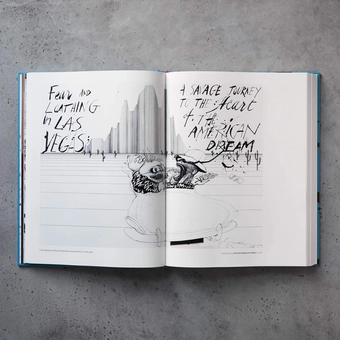 Fear AND
LOATHING
in LAS
VEGAS:
A SAVAGE JOURNEY
TO THE Heart
of THE
AMERICAN
DREAM